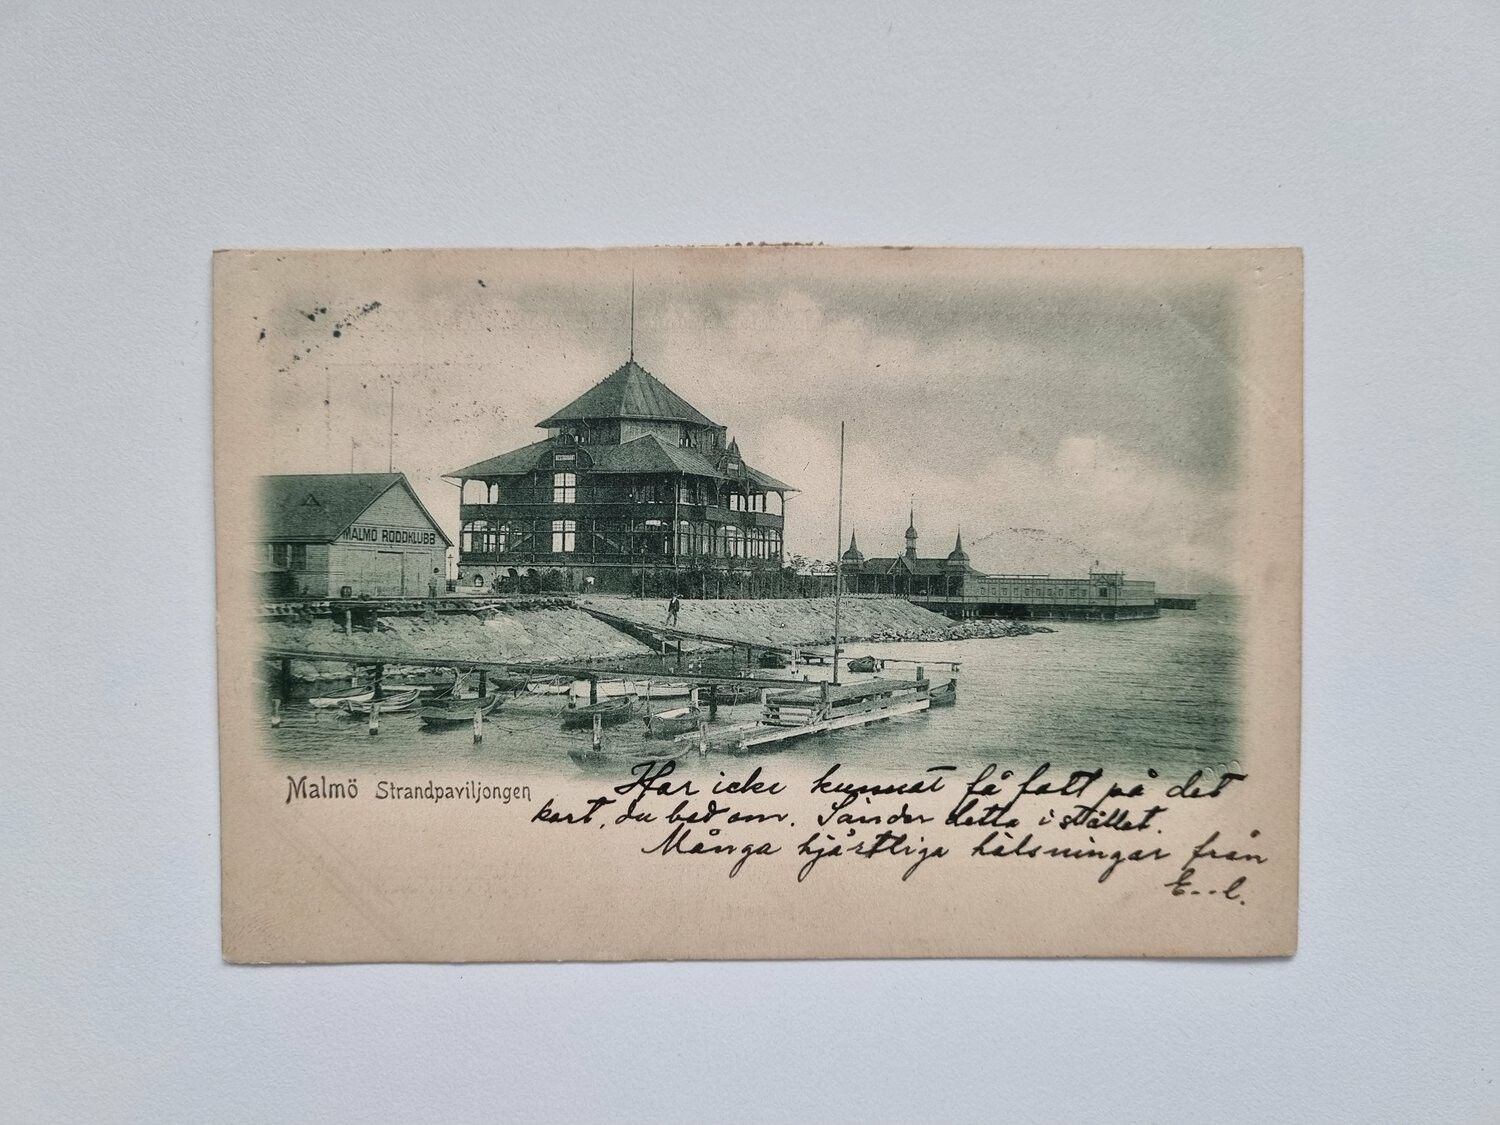 MALMÖ RODDKLUBB
Malmö Strandpaviljongen
Har icke kunnat få fatt på det
kort, du bad om. Sänder detta i stället.
Många hjärtliga hälsningar från
E..l.